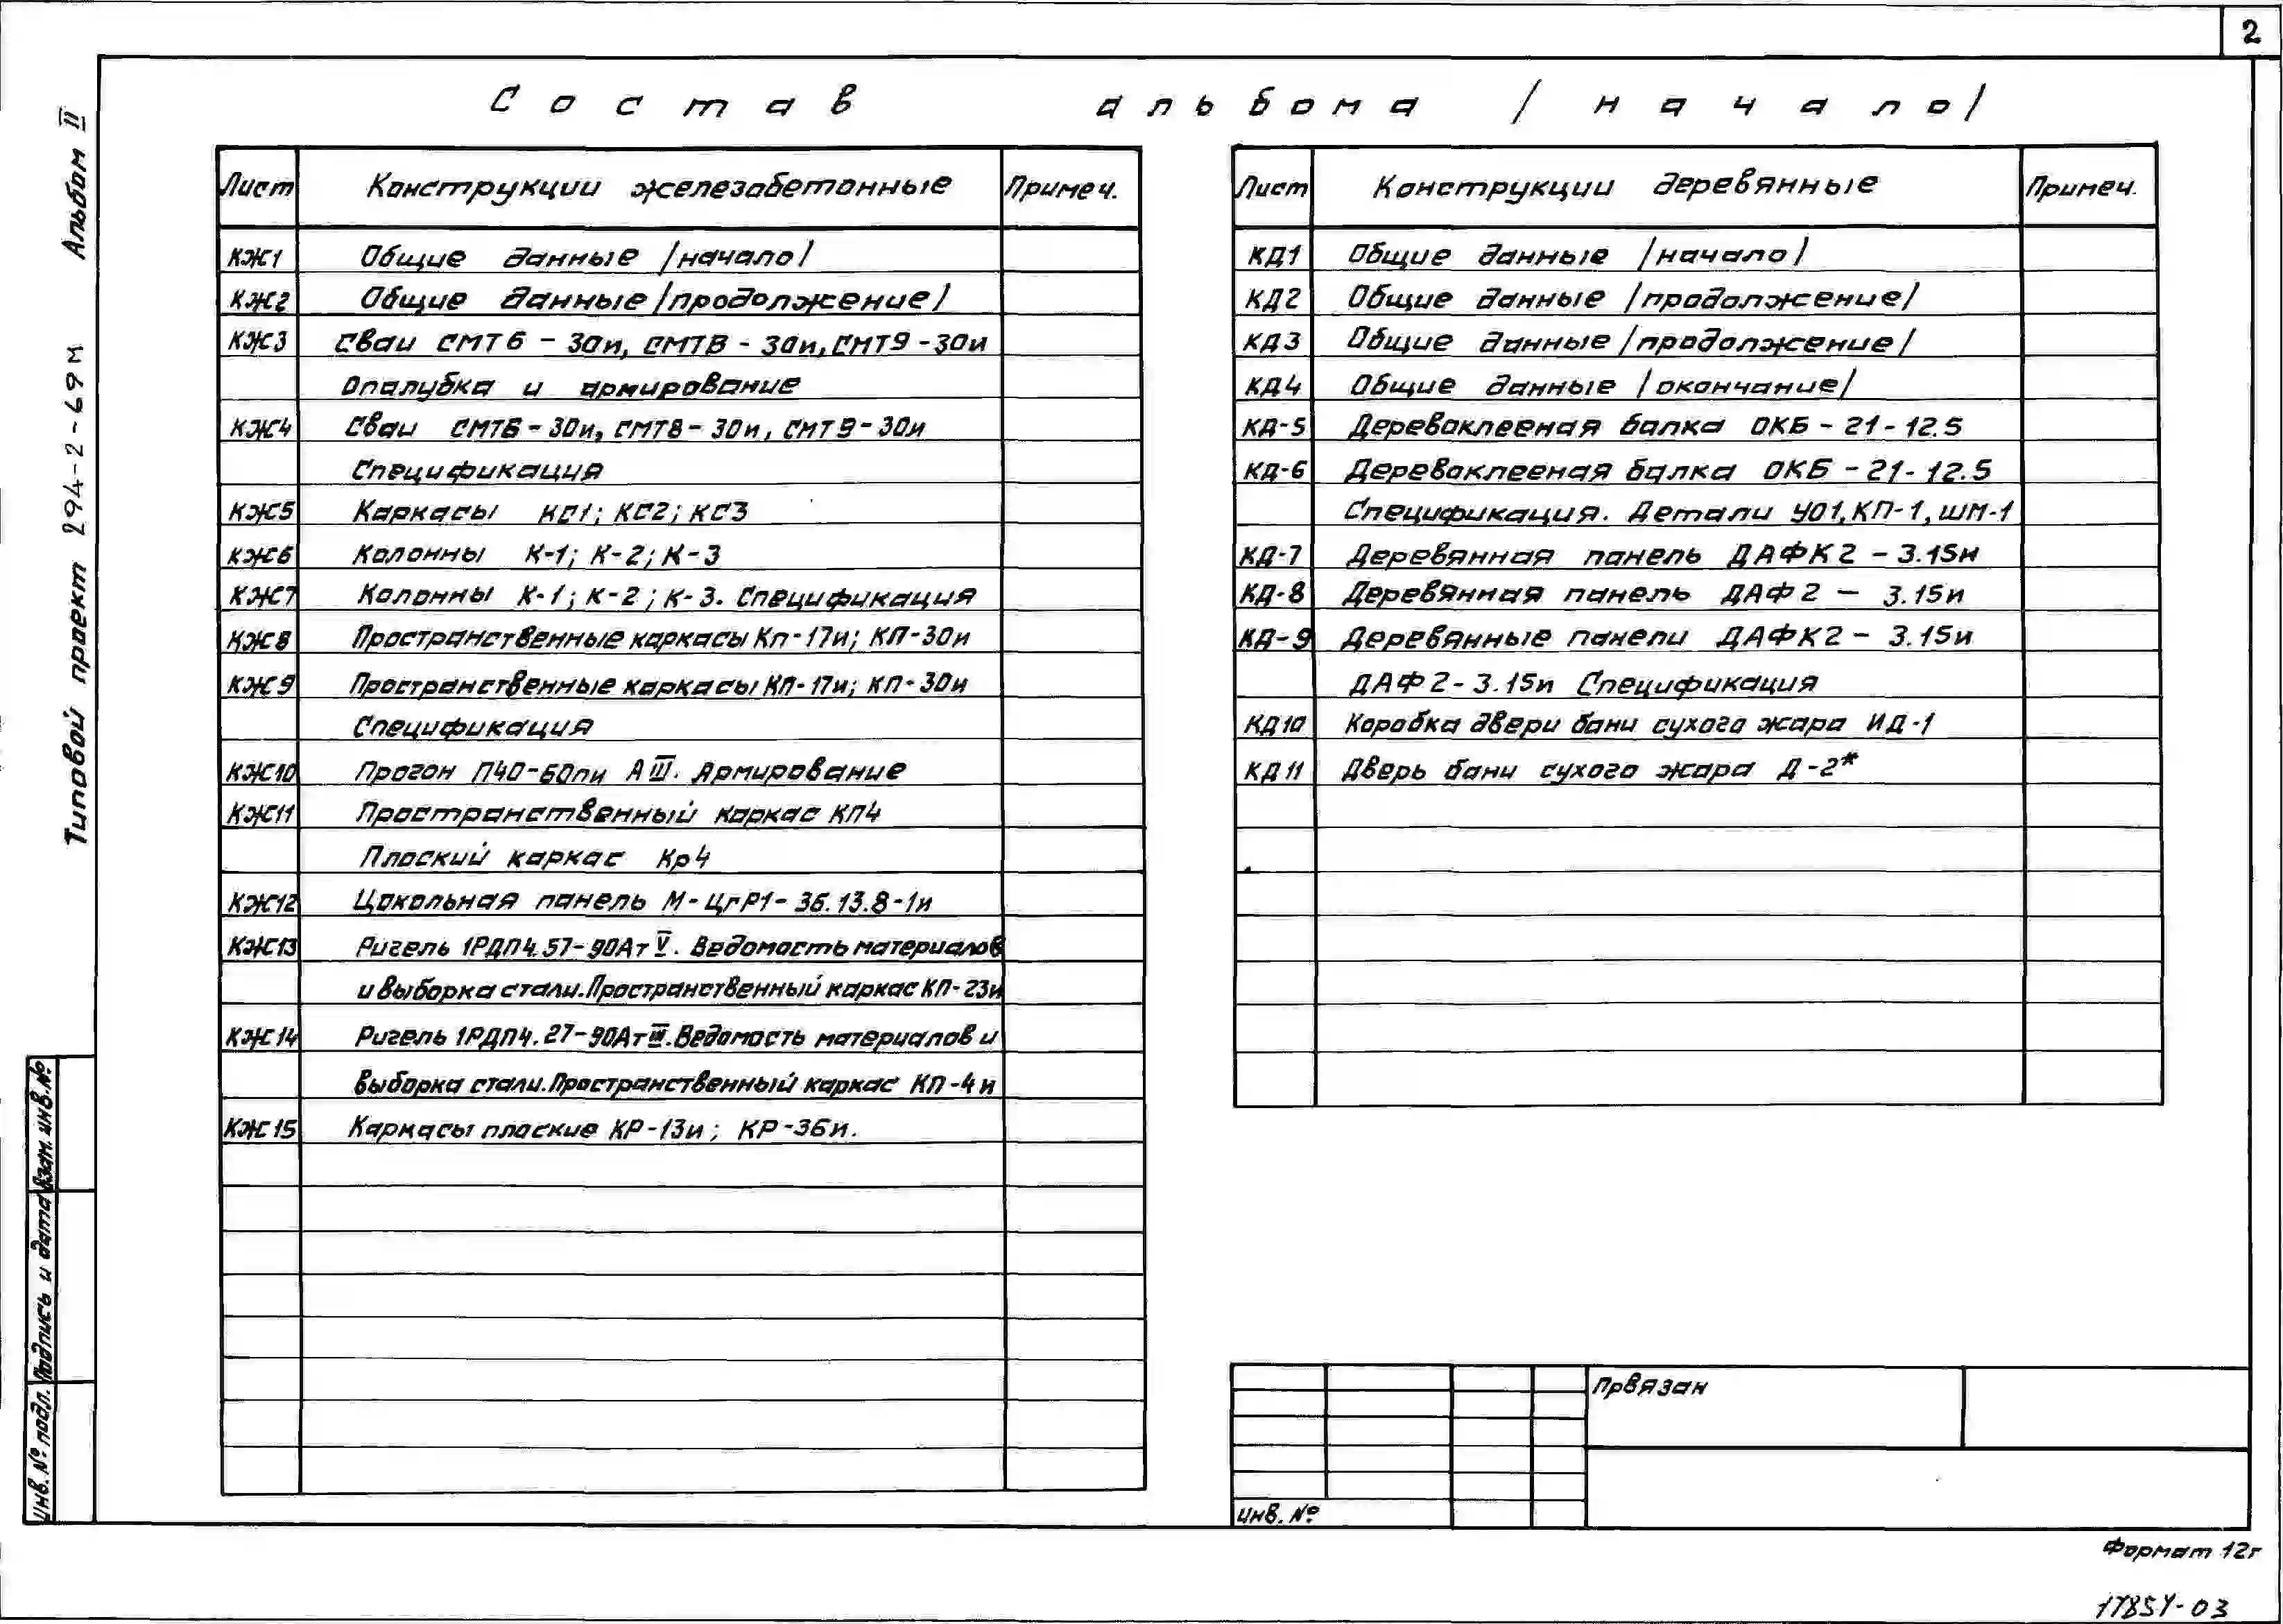 2
Состав альбома /начало/
Типовой проект 294-2-69м Альбом II
Лист Конструкции железобетонные Примеч.
КЖ1 Общие данные /начало/
КЖ2 Общие данные /продолжение/
КЖ3 Сваи СМТ6-30и, СМТ8-30и, СМТ9-30и
Опалубка и армирование
КЖ4 Сваи СМТ6-30и, СМТ8-30и, СМТ9-30и
Спецификация
КЖ5 Каркасы КС1; КС2; КС3
КЖ6 Колонны К-1; К-2; К-3
КЖ7 Колонны К-1; К-2; К-3. Спецификация
КЖ8 Пространственные каркасы Кп-17и; КП-30и
КЖ9 Пространственные каркасы КП-17и; КП-30и
Спецификация
КЖ10 Прогон П40-60пи АIII. Армирование
КЖ11 Пространственный каркас КП4
Плоский каркас Кр4
КЖ12 Цокольная панель М-ЦгР1-36.13.8-1и
КЖ13 Ригель 1РДП4.57-90АтV. Ведомость материалов
и выборка стали. Пространственный каркас КП-23и
КЖ14 Ригель 1РДП4.27-90АтIII. Ведомость материалов и
выборка стали. Пространственный каркас КП-4и
КЖ15 Каркасы плоские КР-13и; КР-36и.
Лист Конструкции деревянные Примеч.
КД1 Общие данные /начало/
КД2 Общие данные /продолжение/
КД3 Общие данные /продолжение/
КД4 Общие данные /окончание/
КД-5 Деревоклееная балка ОКБ-21-12.5
КД-6 Деревоклееная балка ОКБ-21-12.5
Спецификация. Детали У01, КП-1, ШМ-1
КД-7 Деревянная панель ДАФК2-3.15и
КД-8 Деревянная панель ДАФ2-3.15и
КД-9 Деревянные панели ДАФК2-3.15и
ДАФ2-3.15и Спецификация
КД10 Коробка двери бани сухого жара ИД-1
КД11 Дверь бани сухого жара Д-2*
Првязан
Инв. №
Инв. № подл. Подпись и дата Взам. инв. №
Формат 12г